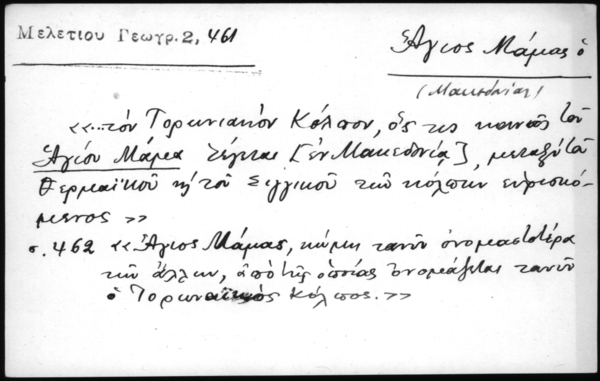 Μελετίου Γεωγρ. 2, 461
Ἅγιος Μάμας ὁ
(Μακεδονίας)
«...τὸν Τορωνιακὸν Κόλπον, ὅς τις κοινῶς τοῦ
Ἁγίου Μάμα λέγεται [ἐν Μακεδονίᾳ], μεταξὺ τοῦ
Θερμαϊκοῦ κ' τοῦ Σιγγικοῦ τῶν κόλπων εὑρισκό-
μενος»
σ. 462 «Ἅγιος Μάμας, κώμη τανῦν ὀνομαστοτέρα
τῶν ἄλλων, ἀπὸ τῆς ὁποίας ὀνομάζεται τανῦν
ὁ Τορωναϊκὸς Κόλπος.»